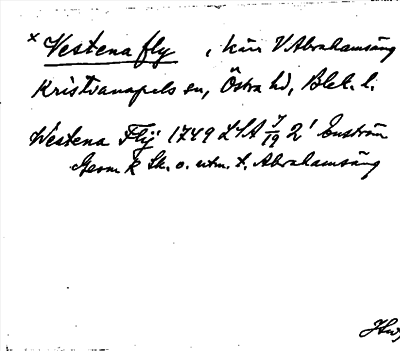 x Vestena fly, kärr V Abrahamsäng
Kristianopels sn, Östra hd, Blek. l.
Westena Flÿ 1749 LSA 7/19 2¹ Enström
Geom k Sk. o. utm. t. Abrahamsäng